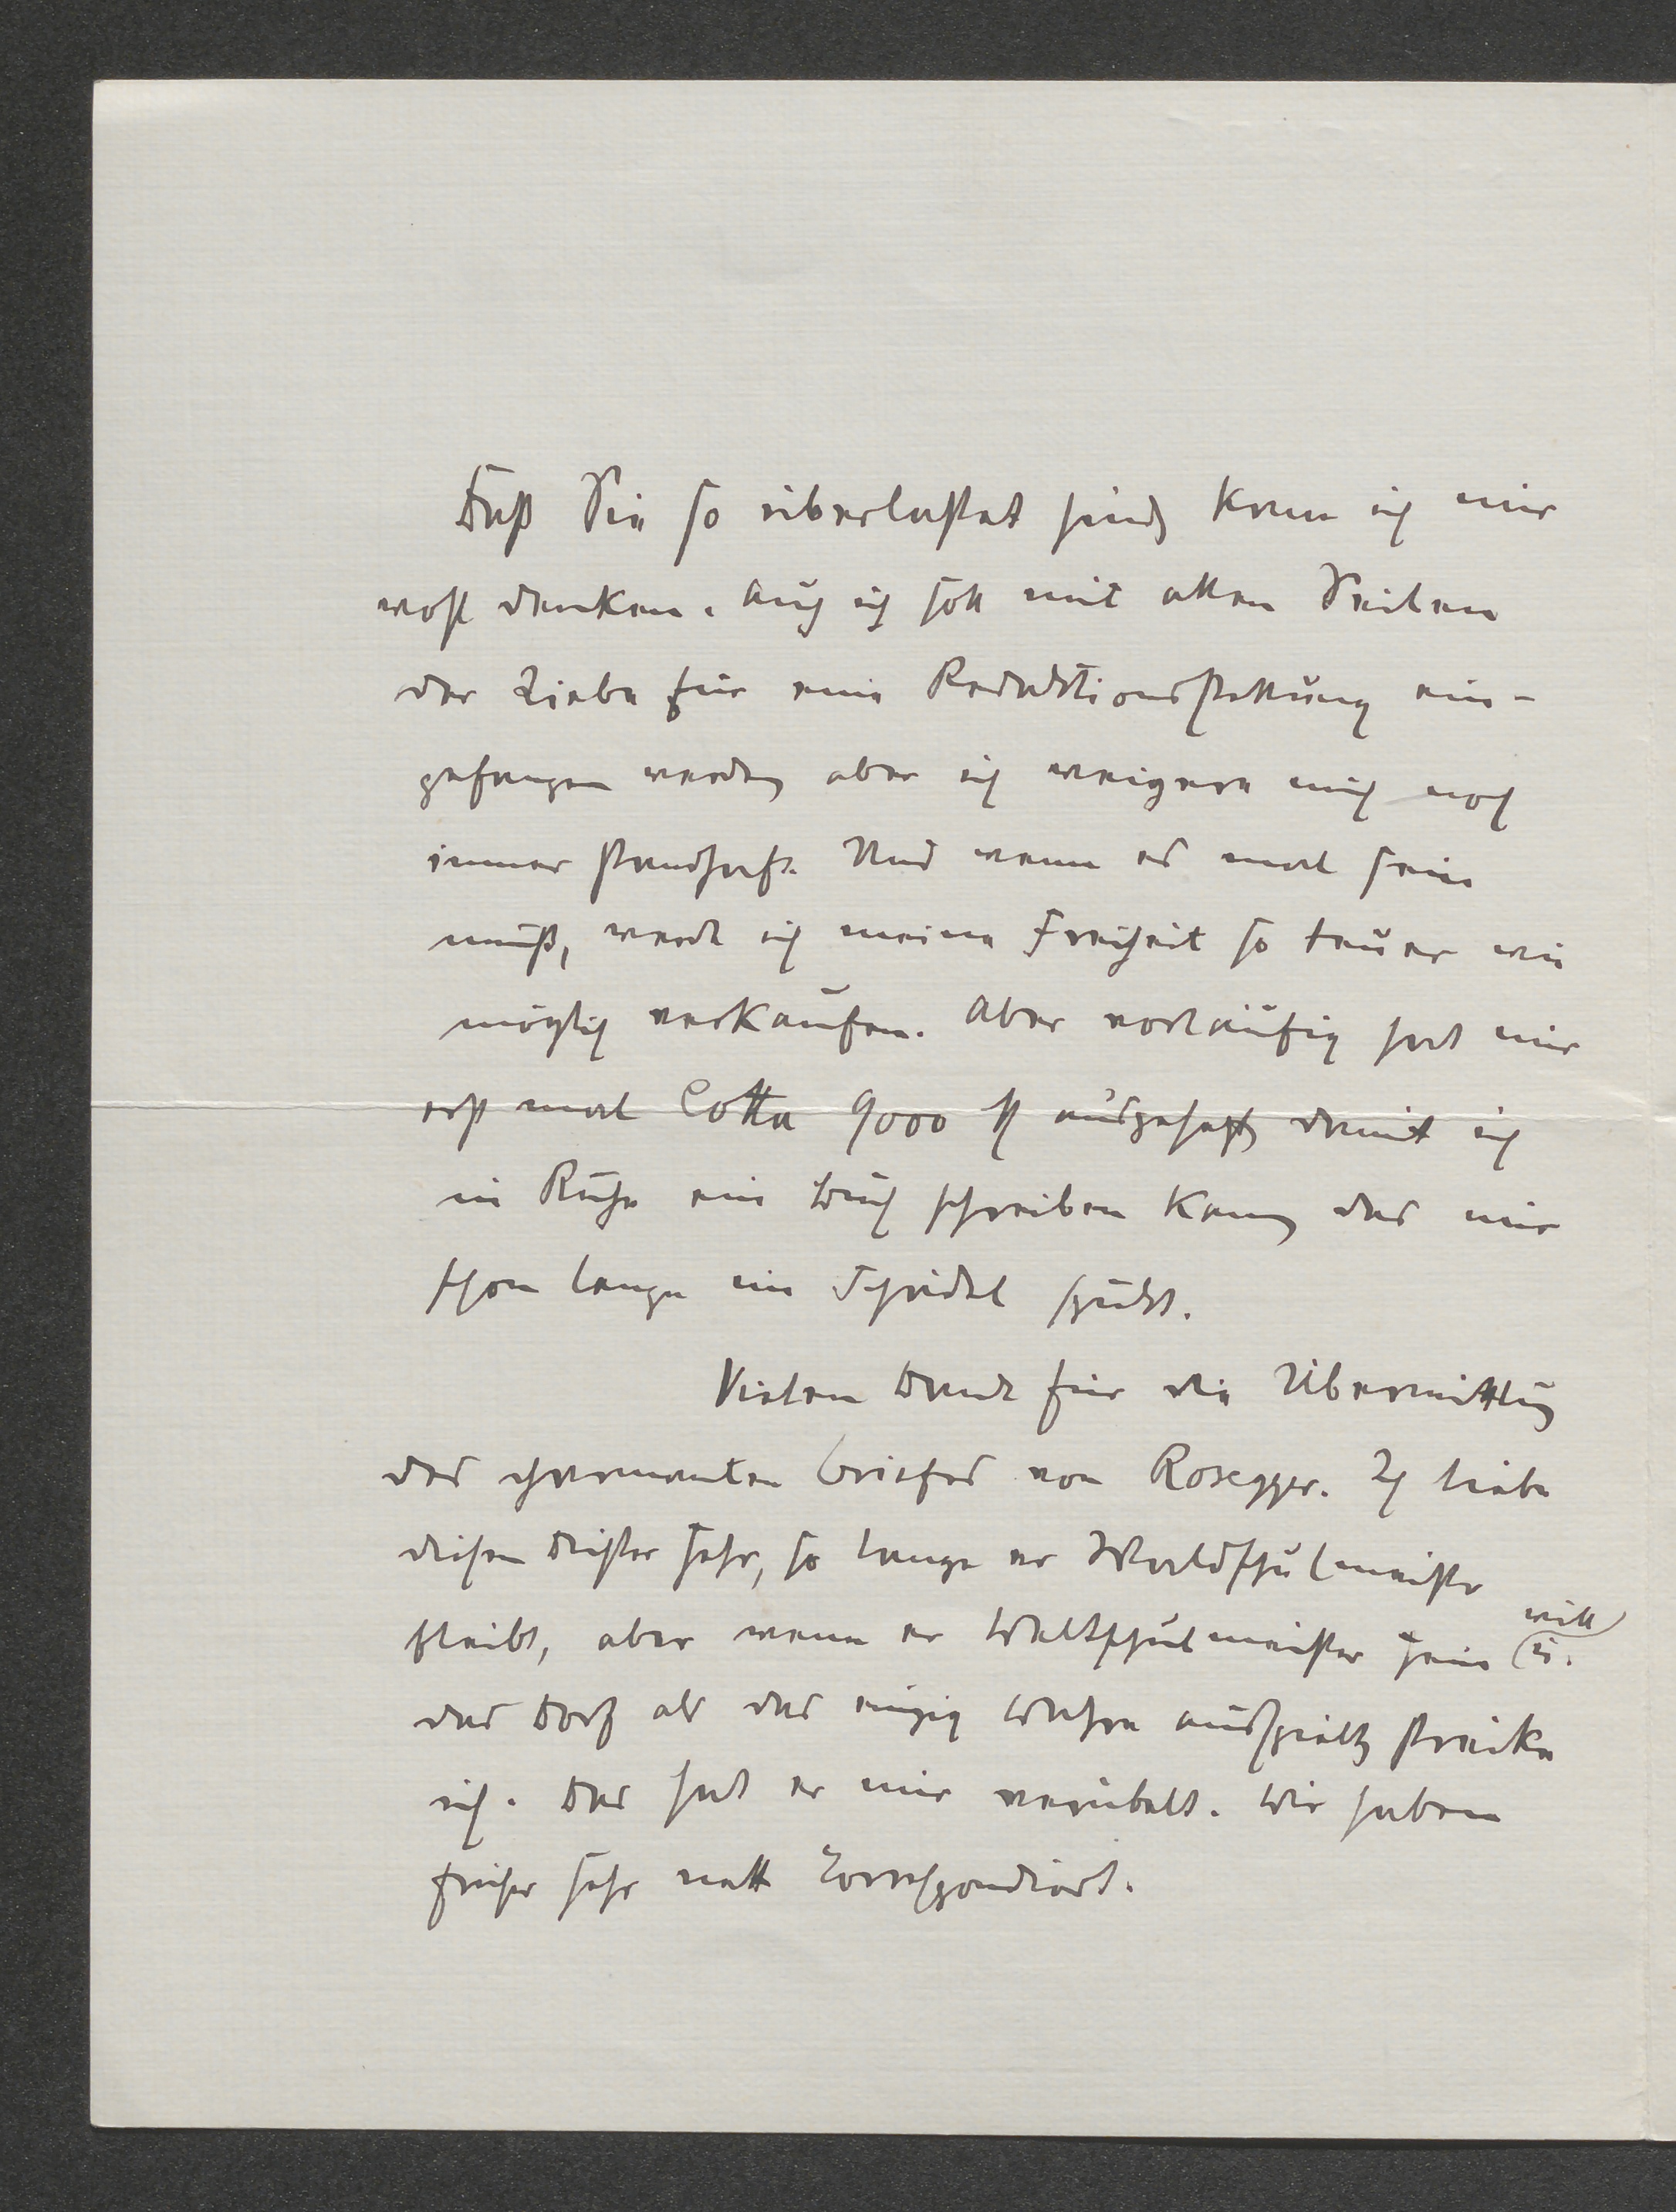 Daß Sie so überlastet sind, kann ich mir
wohl denken. Auch ich soll mit allen Seilen
der Liebe für eine Redaktionsstellung ein-
gefangen werden, aber ich weigere mich noch
immer standhaft. Und wenn es mal sein
muß, werde ich meine Freiheit so teuer wie
möglich verkaufen. Aber vorläufig hat mir
erst mal Cotta 9000 M ausgesetzt, damit ich
in Ruhe ein Buch schreiben kann, das mir
schon lange im Schädel spukt.
Vielen Dank für die Übermittlung
des charmanten Briefes von Rosegger. Ich liebe
diesen Dichter sehr, so lange er Waldschulmeister
bleibt, aber wenn er Weltschulmeister sein will u.
das Dorf als das einzig Wahre ausspielt, streike
ich. Das hat er mir verübelt. Wir haben
früher sehr nett korrespondiert.